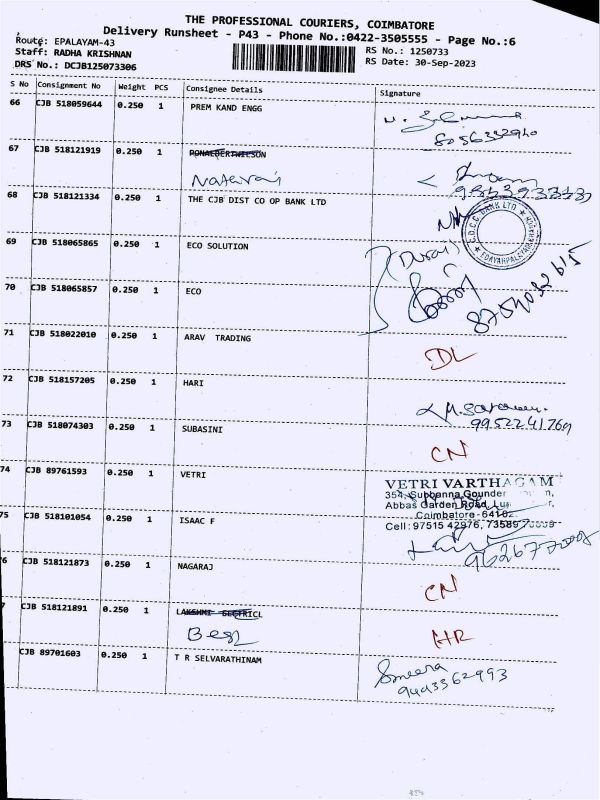 THE PROFESSIONAL COURIERS, COIMBATORE
Delivery Runsheet - P43 - Phone No.:0422-3505555 - Page No.:6
Route: EPALAYAM-43
RS No.: 1250733
Staff: RADHA KRISHNAN
RS Date: 30-Sep-2023
DRS No.: DCJB125073306
S No Consignment No Weight PCS Consignee Details Signature
66 CJB 518059644 0.250 1 PREM KAND ENGG
67 CJB 518121919 0.250 1
Natarai
68 CJB 518121334 0.250 1 THE CJB DIST CO OP BANK LTD
C.D.C.C. BANK LTD
69 CJB 518065865 0.250 1 ECO SOLUTION
(Durai)
70 CJB 518065857 0.250 1 ECO
71 CJB 518022010 0.250 1 ARAV TRADING
DL
72 CJB 518157205 0.250 1 HARI
9952241769
73 CJB 518074303 0.250 1 SUBASINI
CN
74 CJB 89761593 0.250 1 VETRI
VETRI VARTHAGAM
354, Subbanna Gounder
Abbas Garden Road,
Coimbatore-
Cell: 97515 42976, 73589
75 CJB 518101054 0.250 1 ISAAC F
6 CJB 518121873 0.250 1 NAGARAJ
CN
7 CJB 518121891 0.250 1 LAKSHMI
HR
CJB 89701603 0.250 1 T R SELVARATHINAM
Smeera
9443362993